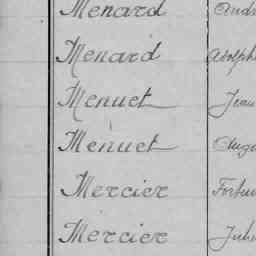 Menard Andr
Menard Adolphe
Menuet Jean
Menuet Augu
Mercier Fortun
Mercier Jule